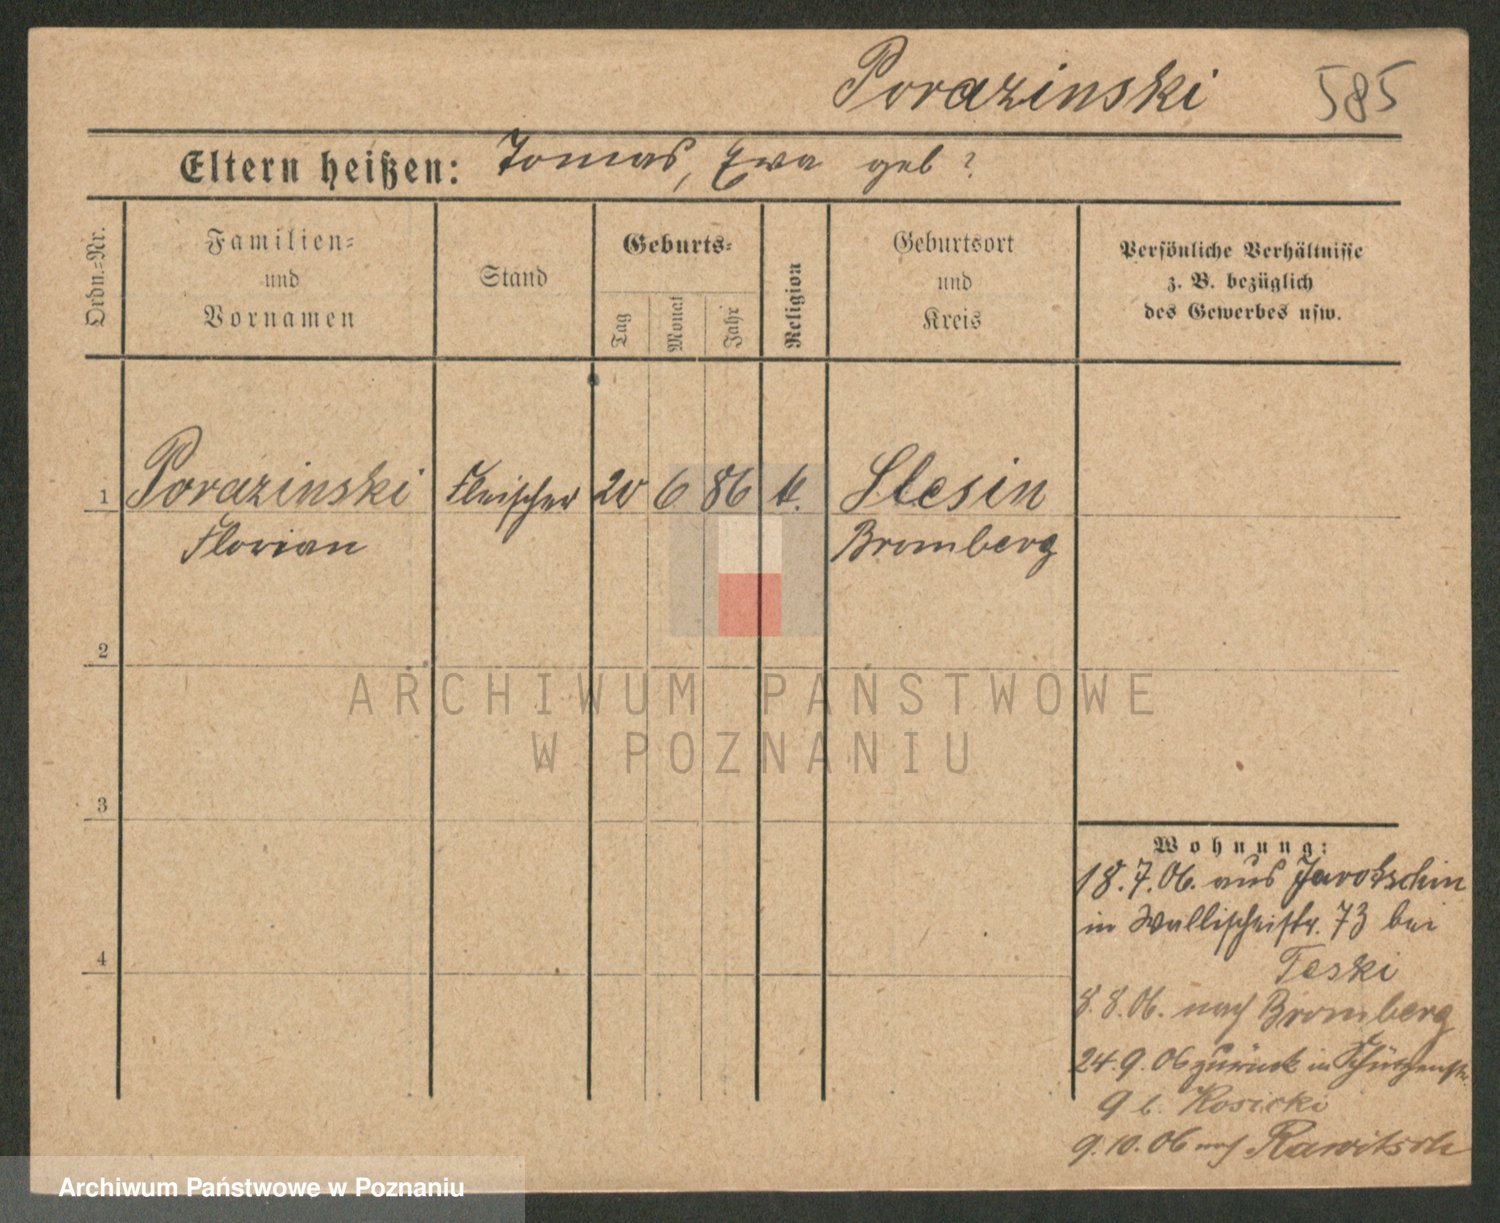 Porazinski 585
Eltern heißen: Tomas, Ewa geb ?
Ordn.=Nr.
Familien=
und
Vornamen
Stand
Geburts=
Tag
Monat
Jahr
Religion
Geburtsort
und
Kreis
Persönliche Verhältnisse
z. B. bezüglich
des Gewerbes usw.
1 Porazinski Fleischer 20 6 86 k. Slesin
Florian Bromberg
2
ARCHIWUM PAŃSTWOWE
W POZNANIU
3
Wohnung:
18.7.06. aus Jarotschin
in Wallischeistr. 73 bei
Teski
4
8.8.06. nach Bromberg
24.9.06 zurück in Schützenstr.
9 b. Kosicki
9.10.06 nach Rawitsch
Archiwum Państwowe w Poznaniu